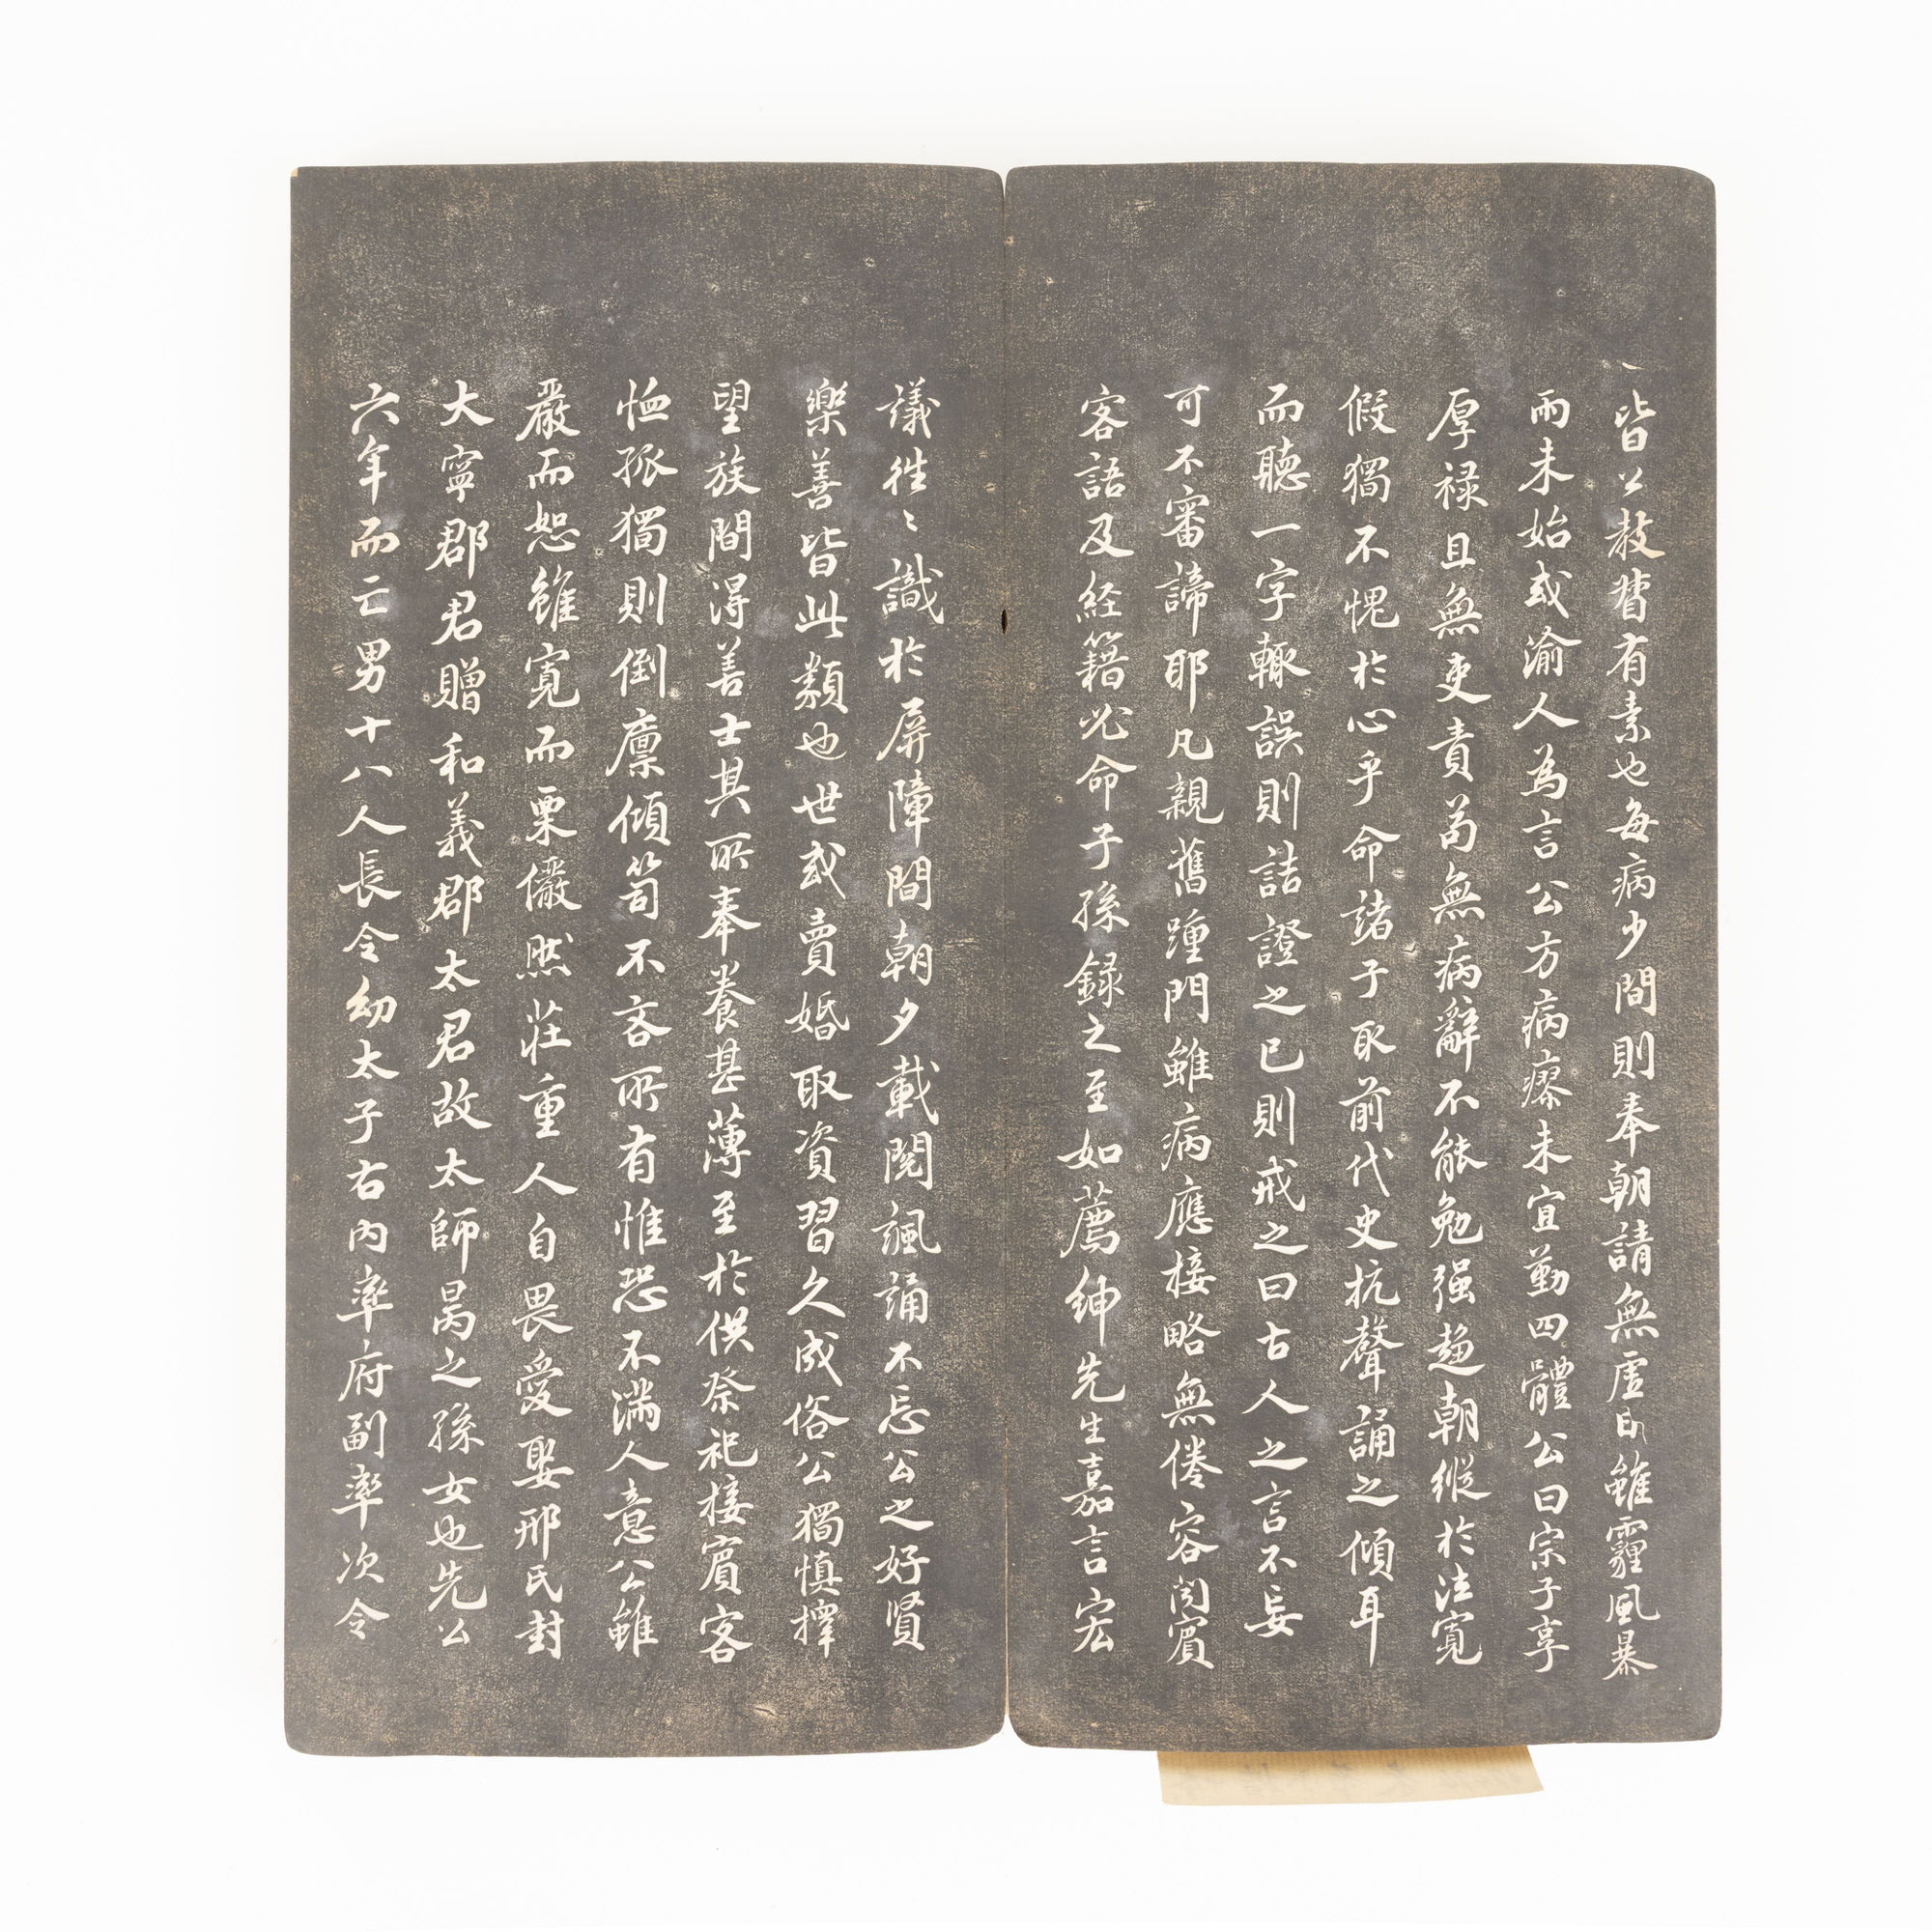 皆公教督有素也每病少間則奉朝請無虛日雖霾風暴
雨未始或渝人為言公方病瘳未宜勤四體公曰宗子享
厚祿且無吏責苟無病辭不能勉强趨朝縱於法寬
假獨不愧於心乎命諸子取前代史抗聲誦之傾耳
而聽一字輒誤則詰證之已則戒之曰古人之言不妄
可不審諦耶凡親舊踵門雖病應接略無倦容閱賓
客語及經籍必命子孫錄之至如薦紳先生嘉言宏
議往〻識於屏障間朝夕載閱諷誦不忘公之好賢
樂善皆此類也世或賣婚取資習久成俗公獨慎擇
望族間得善士其所奉養甚薄至於供祭祀接賓客
恤孤獨則倒廩傾笥不吝所有惟恐不滿人意公雖
嚴而恕雖寬而栗儼然莊重人自畏愛娶邢氏封
大寧郡君贈和義郡太君故太師昺之孫女也先公
六年而亡男十八人長令幼太子右內率府副率次令